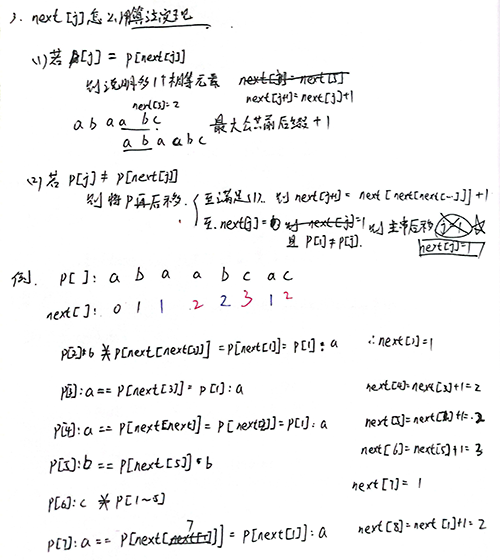 3. next[j]怎么用算法实现
(1)若 P[j] = P[next[j]]
则说明多1个相等元素 next[j]=next[j]
next[3]=2 next[j+1]=next[j]+1
a b a a b c 最大公共前后缀+1
a b a a b c
(2)若 P[j] ≠ P[next[j]]
则将P再后移. 至满足(1). 则 next[j+1] = next[next[next[~]]]+1
至.next[j]=0 则 next[j]=1 则 主串后移 j+1
且 P[1]≠P[j]. next[j]=1
例. P[ ]: a b a a b c a c
next[ ]: 0 1 1 2 2 3 1 2
P[2]:b ≠ P[next[next[2]]] = P[next[1]] = P[1]:a ∴next[3]=1
P[3]:a == P[next[3]] = P[1]:a next[4]=next[3]+1=2
P[4]:a == P[next[next]] = P[next[2]] = P[1]:a next[5]=next[2]+1=2
P[5]:b == P[next[5]]=b next[6]=next[5]+1=3
P[6]:c ≠ P[1~5] next[7] = 1
7
P[7]:a == P[next[next[7]]] = P[next[1]]:a next[8]=next[1]+1=2